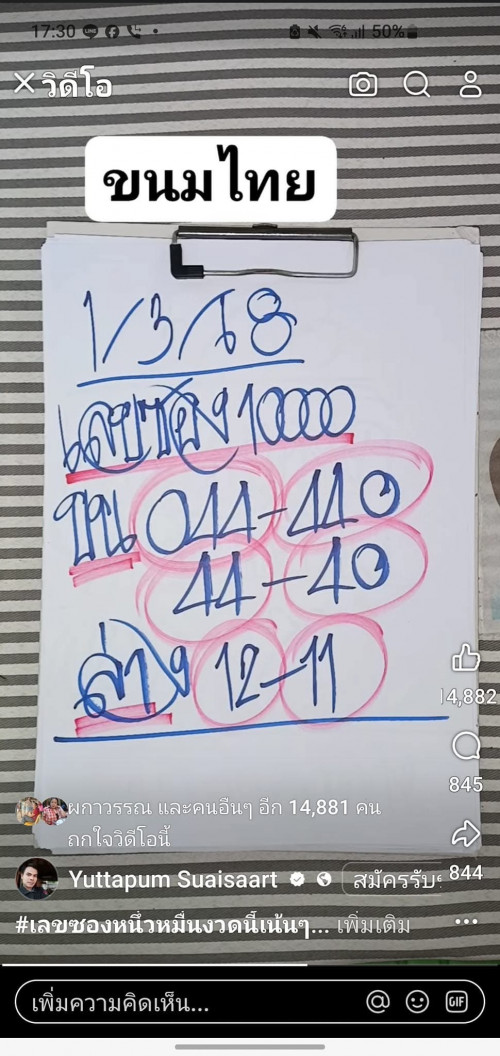 17:30 50%
วิดีโอ
ขนมไทย
1/3/68
เลขซอง 10000
บน 044-440
44-40
ล่าง 12-11
14,882
845
ผกาวรรณ และคนอื่นๆ อีก 14,881 คน
ถูกใจวิดีโอนี้
844
Yuttapum Suaisaart สมัครรับ
#เลขซองหนึ่งหมื่นงวดนี้เน้นๆ... เพิ่มเติม
เพิ่มความคิดเห็น...
GIF